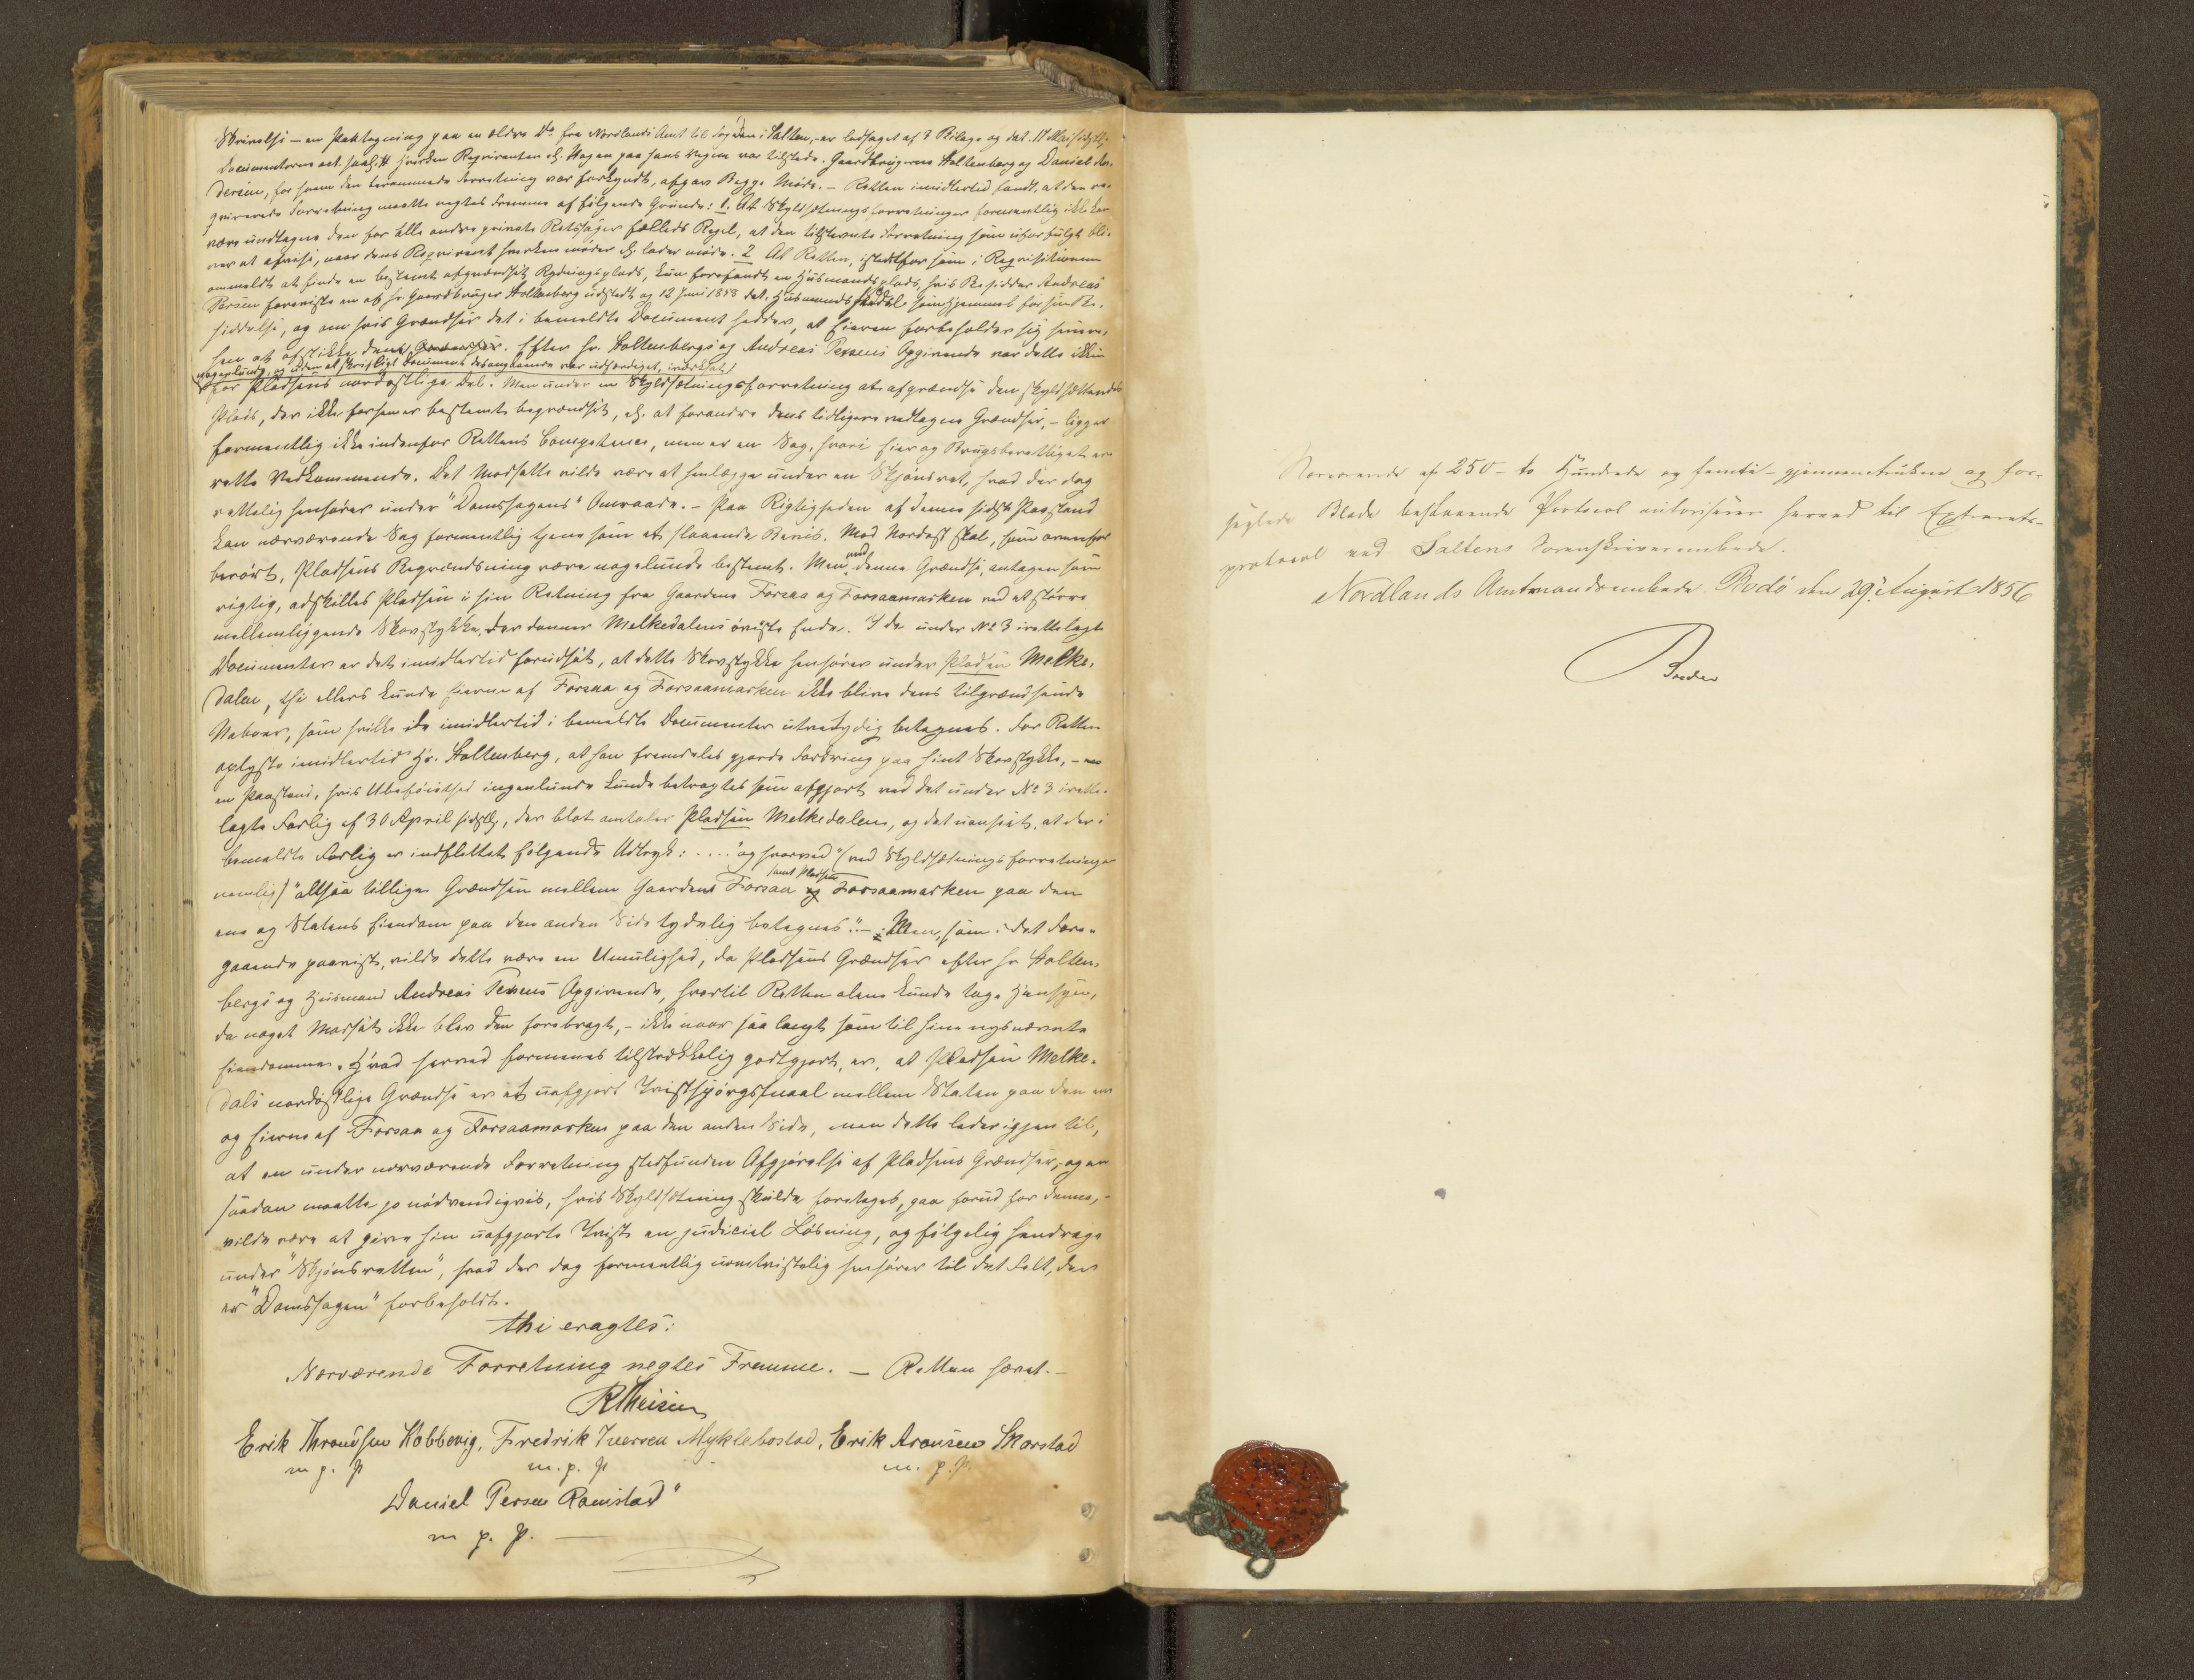 Skrivelse – en Paategning paa en ældre Do. fra Nordlands Amt til Fogden i Salten, – er ledsaget af 3 Bilage og dat. 17 Mai sidstl.
Documenterne act. saal. # Hverken Reqvirenten el. Nogen paa hans Vegne var tilstede. Gaardbrugerne Holtenberg og Daniel An-
dersen, for hvem den berammede Forretning var forkyndt, afgav Begge Møde. – Retten imidlertid fandt, at den re-
qvirerede Forretning maatte negtes Fremme af følgende Grunde: 1. At Skyldsætningsforretninger formentlig ikke kan
være undtagne den for alle andre private Retssager fælleds Regel, at den tilstevnte Forretning som uforfulgt bli-
ver at afvise, naar dens Reqvirent hverken møder el. lader møde. 2 At Retten, istedetfor som i Reqvisitionen
ommeldt at finde en bestemt afgrændset Rydningsplads, kun forefandt en Husmandsplads, hvis Besidder Andreas
Persen foreviste en af Hr. Gaardbruger Holtenberg udstedt og 12 Juni 1858 dat. Husmandsseddel som Hjemmel for sin Be-
siddelse, og om hvis Grændser det i bemeldte Document hedder, at Eieren forbeholder sig senere-
hen at afstikke dens Grændser. Efter Hr. Holtenbergs og Andreas Persens Opgivende var dette ikkun
nogenlunde, og uden at skriftligt Document desangaaende var udfærdiget, iværksat
for Pladsens nordøstlige Del. Men under en Skyldsætningsforretning at afgrændse den skyldsættendes
Plads, der ikke forhen er bestemt begrændset, el. at forandre dens tidligere vedtagne Grændser, – ligger
formentlig ikke indenfor Rettens Competence, men er en Sag, hvori Eier og Brugsberettiget ere
rette Vedkommende. Det Modsatte vilde være at henlægge under en Skjønsret, hvad der dog
rettelig henhører under "Domssagens" Omraade. – Paa Rigtigheden af denne sidste Paastand
kan nærværende Sag formentlig tjene som et slaaende Bevis. Mod Nordost skal, som ovenfor
berørt, Pladsens Begrændsning være nogenlunde bestemt. Men ved denne Grændse, antagen som
rigtig, adskilles Pladsen i sin Retning fra Gaardene Forsaa og Forsaamarken ved et større
mellemliggende Skovstykke, der danner Melkedalens øverste Ende. I de under No 3 irettelagte
Documenter er det imidlertid forudsat, at dette Skovstykke henhører under Pladsen Melke-
dalen, thi ellers kunde Eierne af Forsaa og Forsaamarken ikke blive dens tilgrændsende
Naboer, som hvilke de imidlertid i bemeldte Documenter utvetydig betegnes. For Retten
oplyste imidlertid Hr. Holtenberg, at han fremdeles gjorde Fordring paa hint Skovstykke, – en
en Paastand, hvis Ubeføiethed ingenlunde kunde betragtes som afgjort ved det under No 3 irette-
lagte Forlig af 30 April sidstl., der blot omtaler Pladsen Melkedalen, og det uanseet, at der i
bemeldte Forlig er indflettet følgende Udtryk: .... "og hvorved" (ved Skyldsætningsforretningen
nemlig) "altsaa tillige Grændsen mellem Gaardene Forsaa samt Pladsen og Forsaamarken paa den
ene og Statens Eiendom paa den anden Side tydelig betegnes". – Men, som i det Fore-
gaaende paavist, vilde dette være en Umulighed, da Pladsens Grændser efter Hr Holten-
bergs og Husmand Andreas Persens Opgivende, hvortil Retten alene kunde tage Hensyn,
da noget Modsat ikke blev den forebragt, – ikke naar saa langt som til hine nysnævnte
Eiendomme. Hvad herved formenes tilstrækkelig godtgjort, er, at Pladsen Melke-
dals nordøstlige Grændse er et uafgjort Tvistspørgsmaal mellem Staten paa den ene
og Eierne af Forsaa og Forsaamarken paa den anden Side, men dette leder igjen til,
at en under nærværende Forretning stedfunden Afgjørelse af Pladsens Grændser, – og en
saadan maatte jo nødvendigvis, hvis Skyldsætning skulde foretages, gaa forud for denne, –
vilde være at give hin uafgjorte Tvist en judiciel Løsning, og følgelig hendrage
under "Skjønsretten", hvad der dog formentlig uomtvistelig henhører til det Felt, der
er "Domssagen" forbeholdt.
thi eragtes:
Nærværende Forretning negtes Fremme. – Retten hævet. –
RTheisen
Erik Throndsen Kobbevig, Fredrik Iversen Myklebostad, Erik Aronsen Skorstad
m. p. P m. p. P m. p. P.
Daniel Persen Ramstad"
m. p. P. –
Nærværende af 250 – to Hundrede og femti – gjennemtrukne og for-
seglede Blade bestaaende Protocol autoriseres herved til Extrarets-
protocol ved Saltens Sorenskriverembede.
Nordlands Amtmandsembede Bodö den 29de August 1856